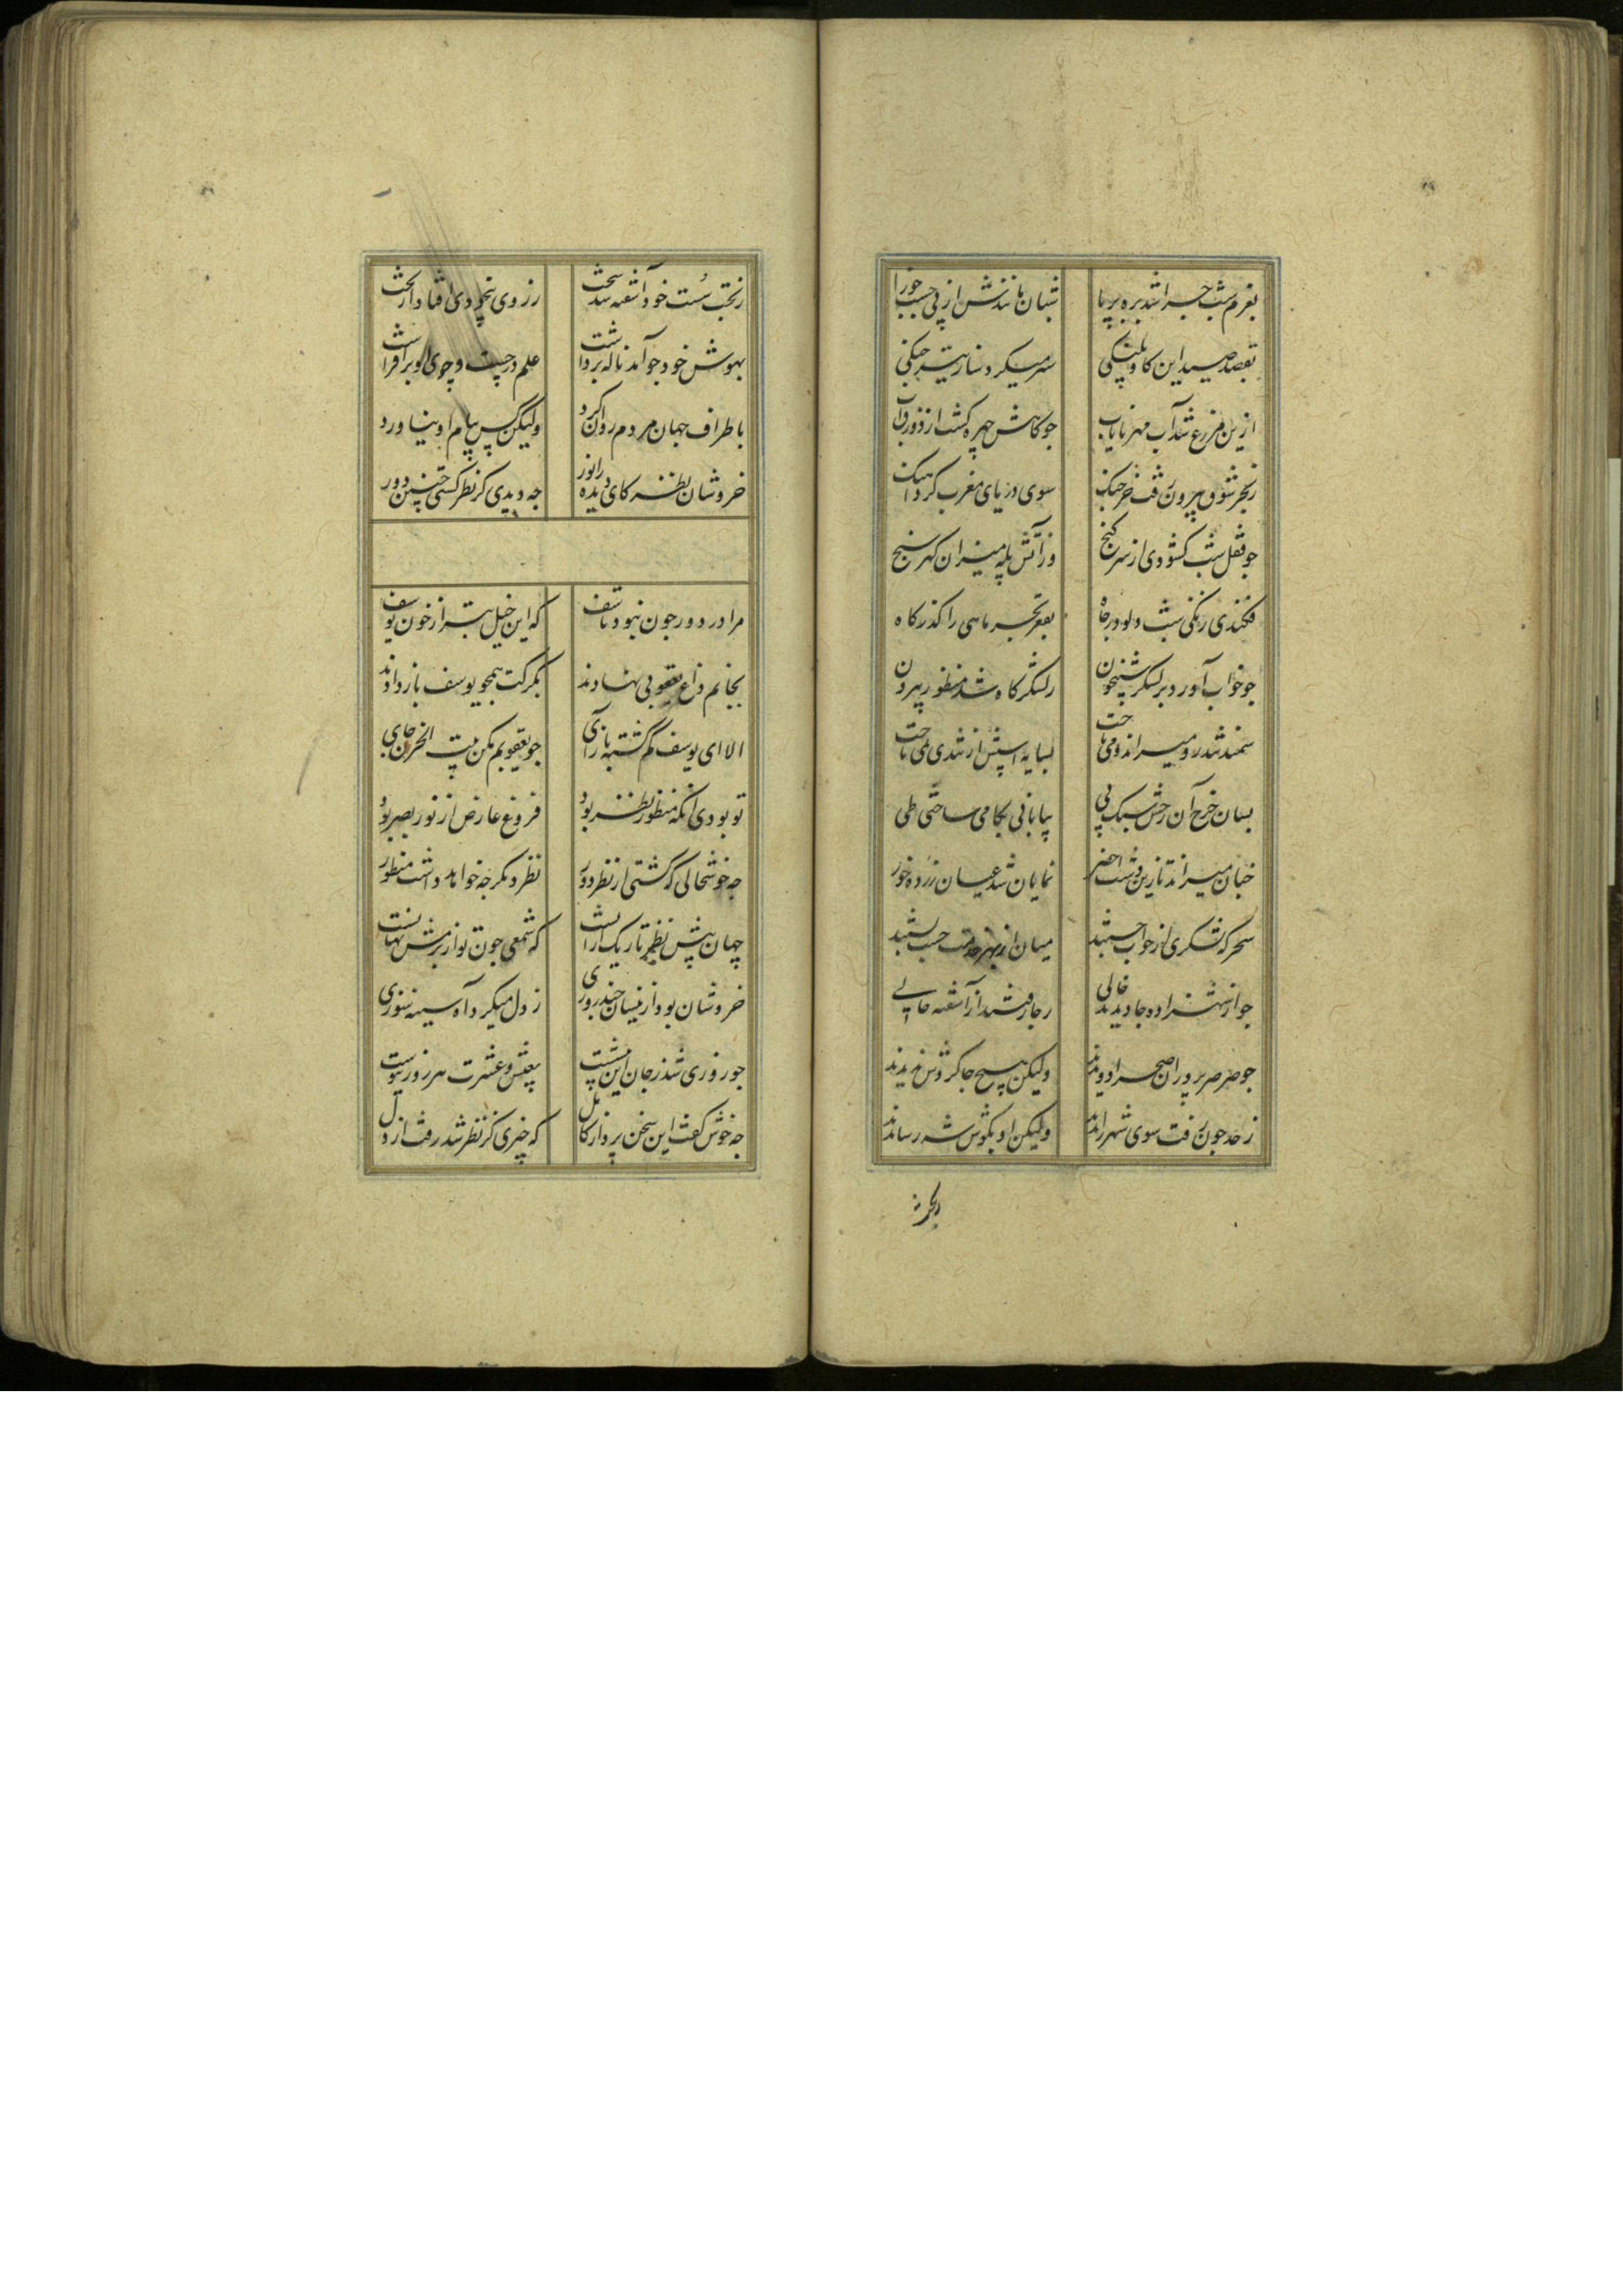 بعزم شب چرا شد بره برپا شبان مانندش از پی جست جوزا
بقصد صید این کاو پلنکی
ازین مزرع شد آب مهر نایاب جو کاهش چهره کشت از دوری آب
زبحر شرق بیرون رفت خرچنک سوی دریای مغرب کرد آهنک
جو قفل شب کشودی از سر کنج وز آتش پله میزان کهر سنج
فکندی زنکی شب دلو در چاه بقعر بحر ماهی را کذر کاه
جو خواب آورد بر لشکر شبیخون ز لشکر کاه شد منظور بیرون
سمند تند رو میراند و می تاخت بسایه اسپش از تندی نمی ساخت
بسان چرخ آن رخش سبک پی بیابانی بکامی ساختی طی
چنان میراند تا زین دشت اخضر نمایان شد عیان زرده خور
سحر که لشکری از خواب جستند میان از بهر خدمت چست بستند
جو از شهزاده جا دیدند خالی ز جا رفتند از آشفته حالی
جو صرصر بر در آن صحرا دویدند ولیکن هیچ جا کردش ندیدند
ز حد چون رفت سوی شهر راندند ولیکن او بکوش شه رساندند
ز بخت سست خود آشفته شد سخت ز روی بیخودی افتاد از تخت
بهوش خود جو آمد ناله برداشت علم در جست و جوی او برافراشت
باطراف جهان مردم روان کرد ولیکن کس پیام او نیاورد
خروشان با نظر کای دیده را نور جه دیدی کز نظر کشتی چنین دور
مرا در دور چون نبود تاسف که این خیل بتر از خون یوسف
بجانم داغ یعقوبی نهادند بکرکت همچو یوسف باز دادند
الا ای یوسف کم کشته بازآی جو یعقوبم مکن بیت الحزن جای
تو بودی آنکه منظور نظر بود فروغ عارض از نور بصر بود
جه خوشحالی که کشتی از نظر دور نظر دیکر جه خواهد داشت منظور
جهان پیش نظر تاریک ازانست که شمعی چون تو از بزمش نهانست
خروشان بود ازینسان چند روزی ز دل میکرد آه سینه سوزی
جو روزی شد ز جان این بعیش و عشرت هر روز پیوست
جه خوش کفت این سخن پرداز کامل که چیزی کز نظر شد رفت از دل